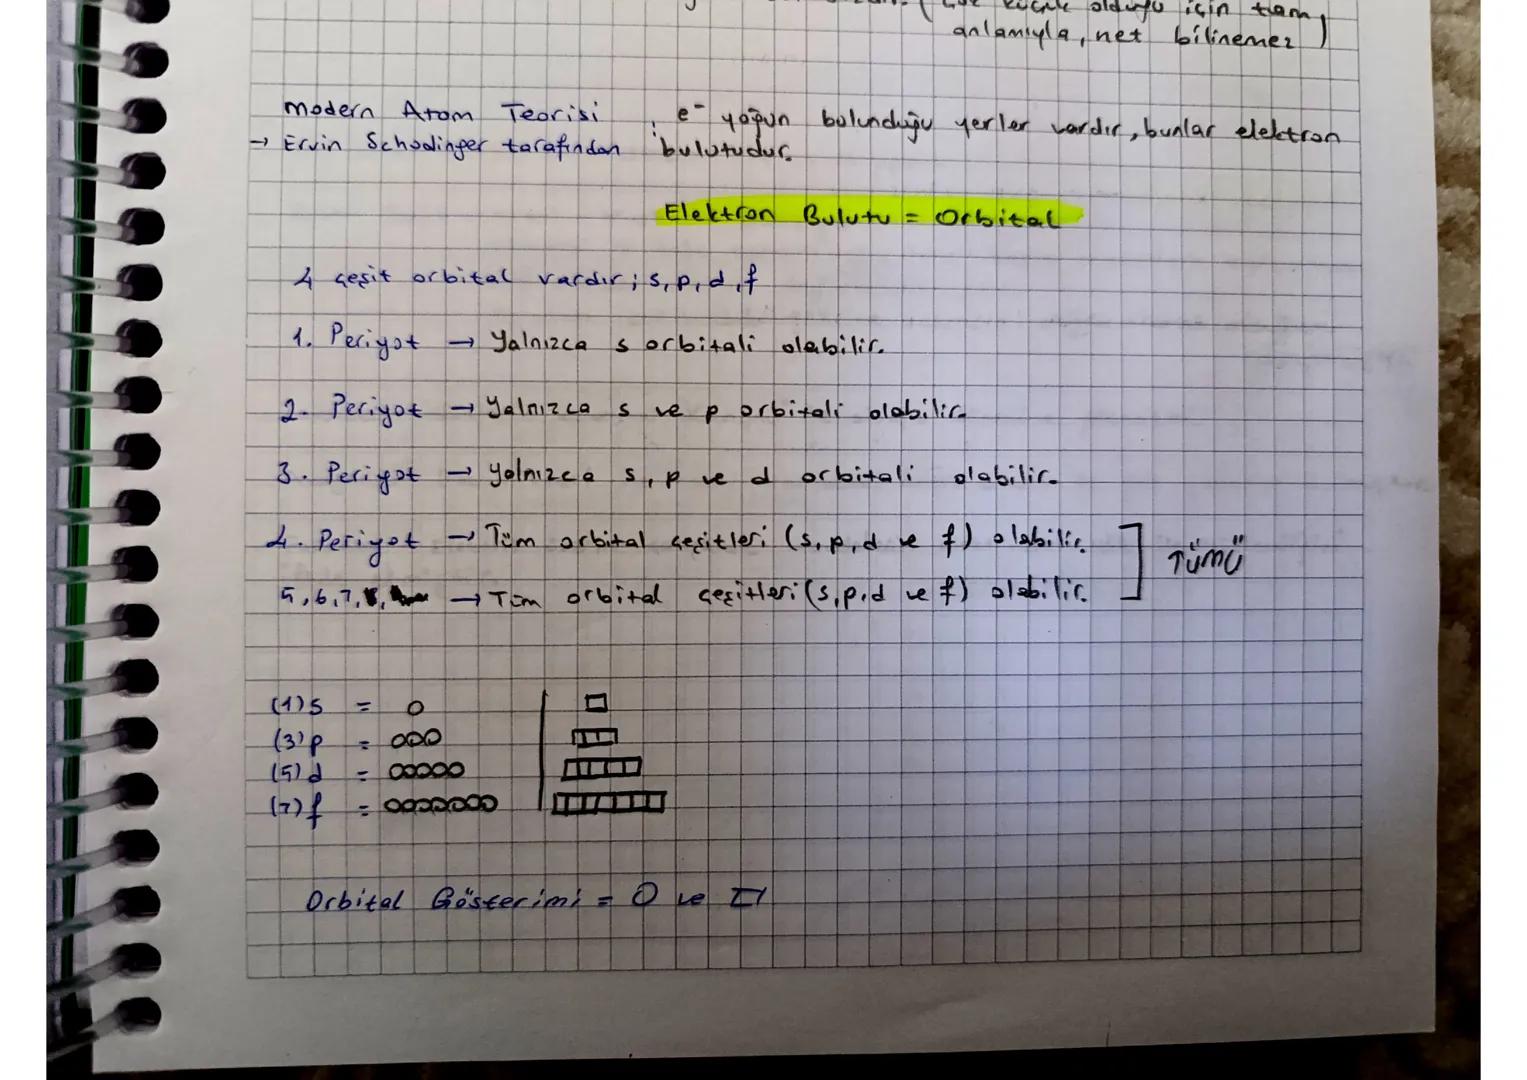 olduğu için tam
anlamıyla, net bilinemez)
modern Atom Teorisi
→ Ervin Schodinger tarafından
e⁻ yoğun bulunduğu yerler vardır, bunlar elektron
bulutudur.
Elektron Bulutu = Orbital
4 çeşit orbital vardır; s, p, d, f
1. Periyot → Yalnızca s orbitali olabilir.
2. Periyot → Yalnızca s ve p orbitali olabilir.
3. Periyot → Yalnızca s, p ve d orbitali olabilir.
4. Periyot → Tüm orbital çeşitleri (s, p, d ve f) olabilir.
5, 6, 7, → Tüm orbital çeşitleri (s, p, d ve f) olabilir.
TÜMÜ
(1) s = O
(3) p = OOO
(5) d = OOOOO
(7) f = OOOOOOO
Orbital Gösterimi = O ve □